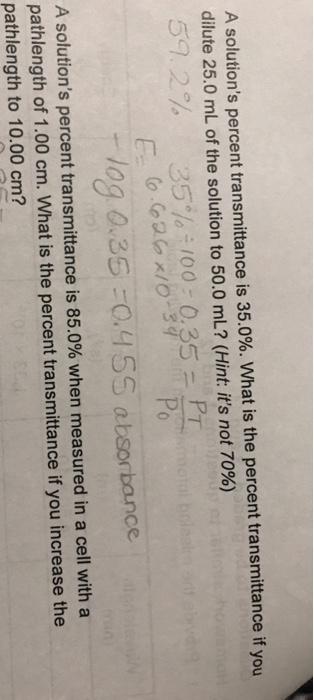 A solution's percent transmittance is 35.0%. What is the percent transmittance if you
dilute 25.0 mL of the solution to 50.0 mL? (Hint: it's not 70%)
59.2% 35% ÷ 100 = 0.35 = PT
Po
E= 6.626×10-34
-log 0.35 = 0.455 absorbance
A solution's percent transmittance is 85.0% when measured in a cell with a
pathlength of 1.00 cm. What is the percent transmittance if you increase the
pathlength to 10.00 cm?